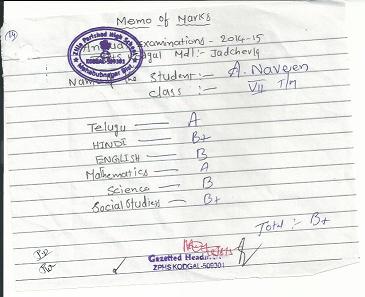 Memo of Marks
Annual Examinations - 2014-15
Zilla Parishad High School
KODGAL-509301
Mahabubnagar Dist
ZPHS Kodgal Mdl:- Jadcherla
Name of the Student:- A. Naveen
class:- VII T/M
Telugu — A
HINDI — B+
ENGLISH — B
Mathematics — A
Science — B
Social Studies — B+
Total :- B+
Gazetted Headm
ZPHS KODGAL-509301